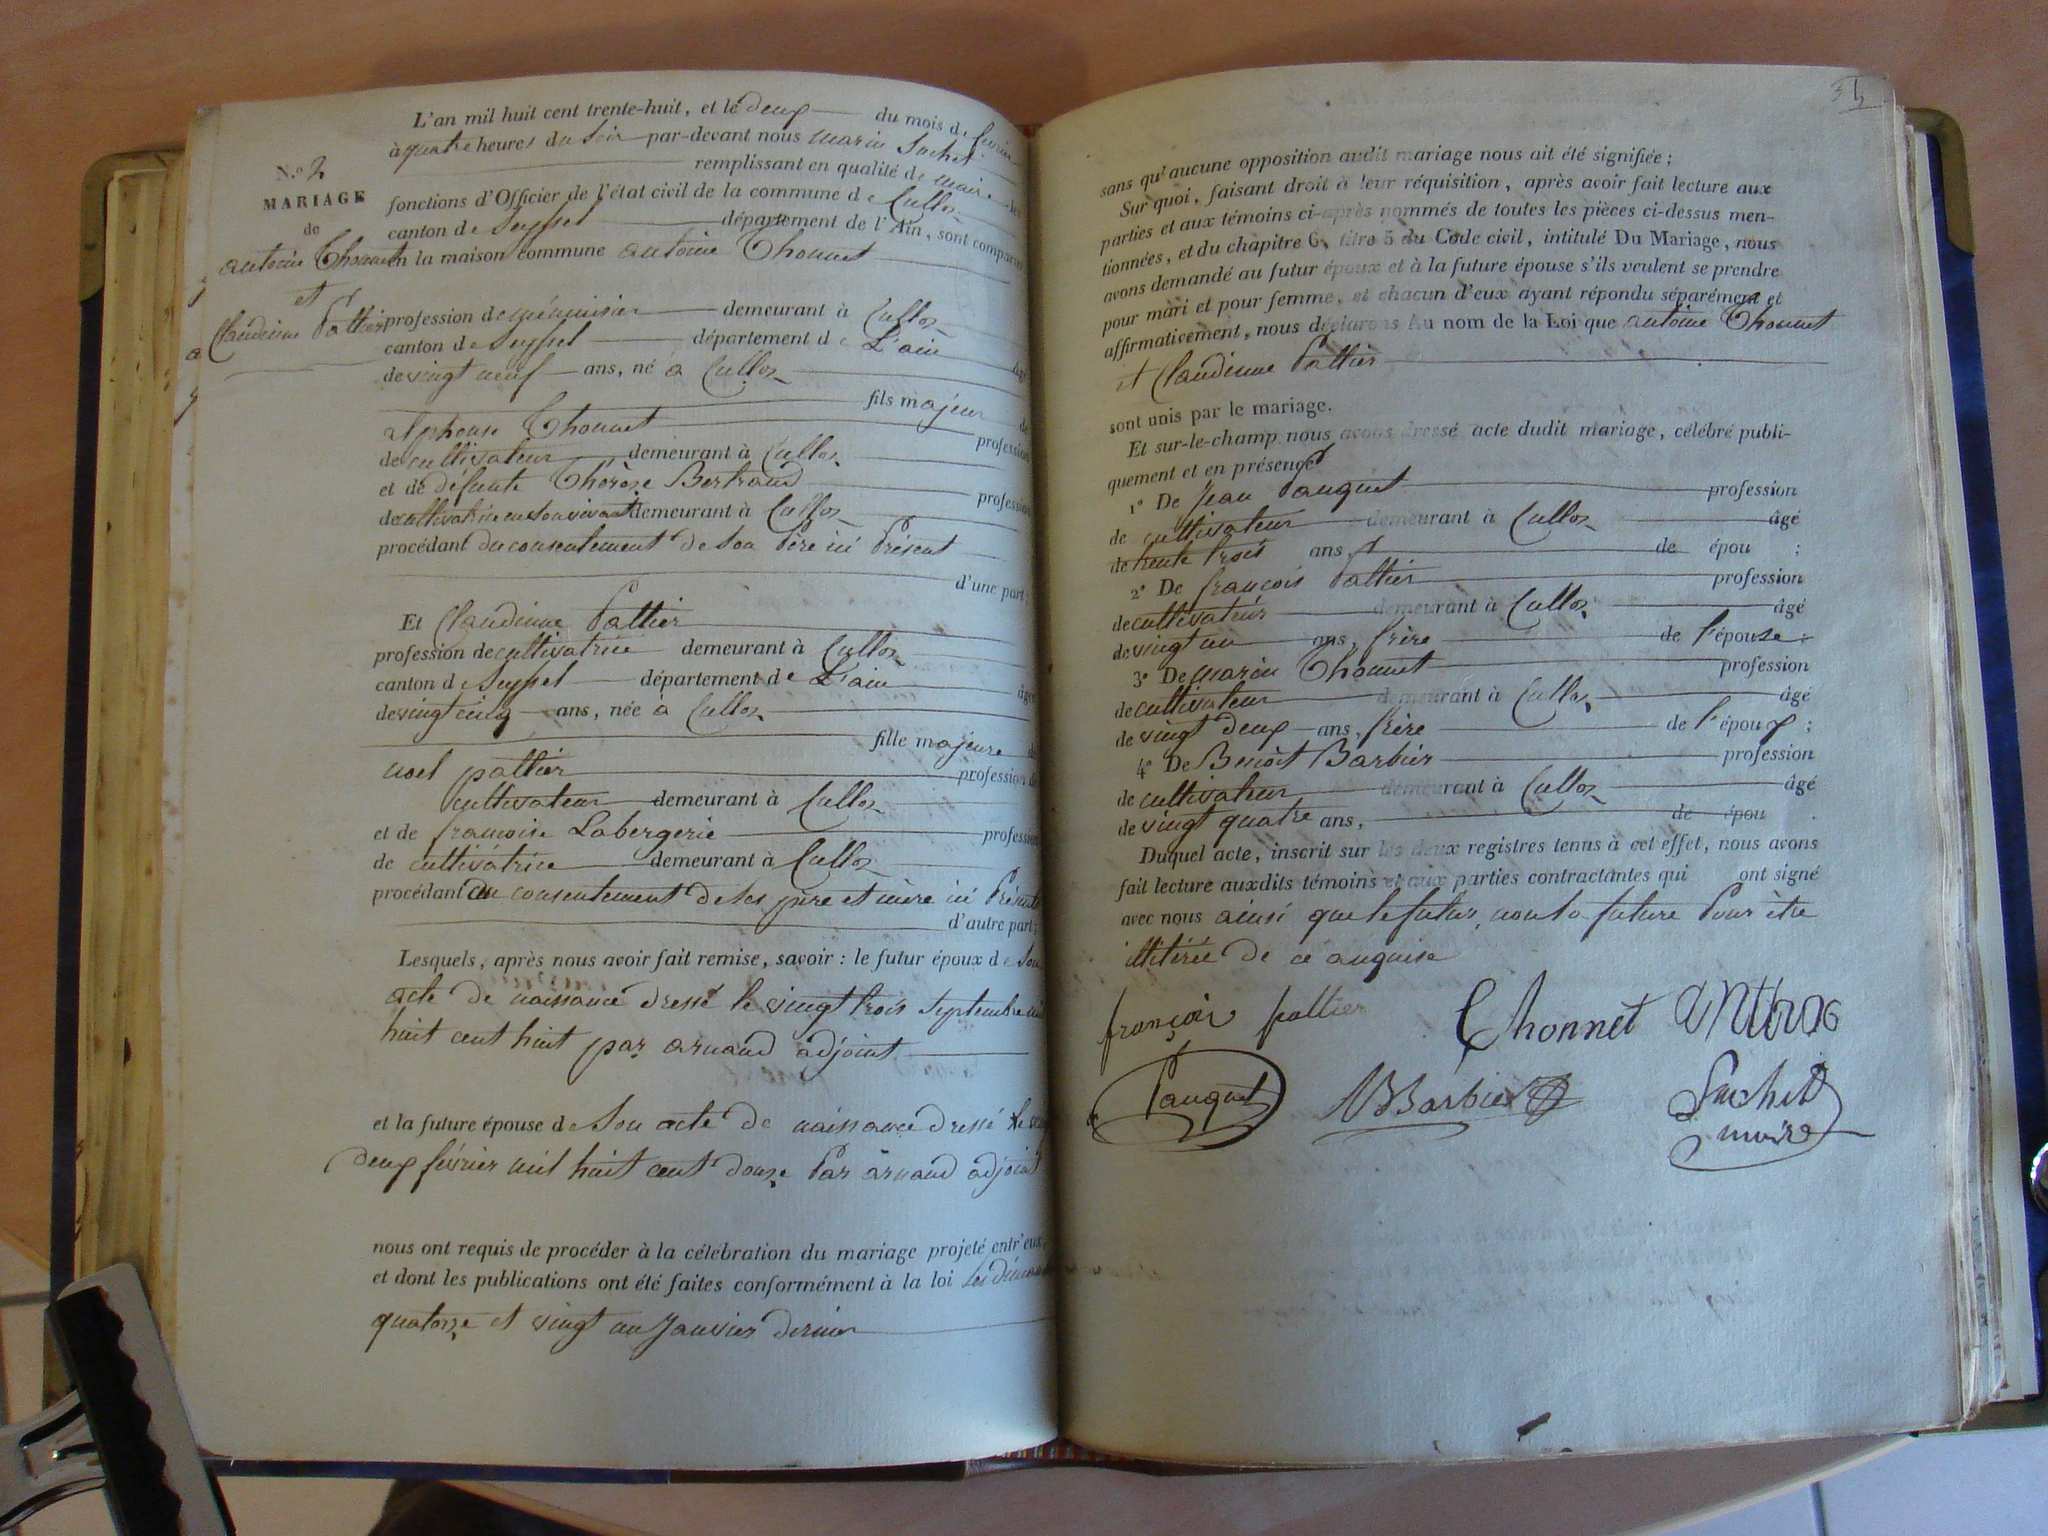 L'an mil huit cent trente-huit, et le deux du mois de février
à quatre heures du soir par-devant nous marin Suchet
remplissant en qualité de maire les
fonctions d'Officier de l'état civil de la commune de Culloz
canton de Seyssel département de l'Ain, sont comparus
en la maison commune antoine Thonnet
N.º 2
MARIAGE
de
antoine Thonnet
et
Claudinne Pattier
profession de menuisier demeurant à Culloz
canton de Seyssel département de L'ain âgé
de vingt neuf ans, né à Culloz
fils majeur de
alphonse Thonnet profession
de cultivateur demeurant à Culloz
et de défunte Thérèze Bertrand profession
de cultivatrice en son vivant demeurant à Culloz
procédant du consentement de son Père ici Présent
d'une part;
Et Claudinne Pattier
profession de cultivatrice demeurant à Culloz
canton de Seyssel département de L'ain âgée
de vingt cinq ans, née à Culloz
fille majeure de
noel pattier profession de
cultivateur demeurant à Culloz
et de françoise Labergerie profession
de cultivatrice demeurant à Culloz
procédant du consentement de ses père et mère ici Présents
d'autre part;
Lesquels, après nous avoir fait remise, savoir: le futur époux de son
acte de naissance dressé le vingt trois septembre mil
huit cent huit par arnaud adjoint
et la future épouse de Son acte de naissance dressé le
deux février mil huit cent douze Par arnaud adjoint
nous ont requis de procéder à la célébration du mariage projeté entr'eux,
et dont les publications ont été faites conformément à la loi les dimanches
quatorze et vingt un Janvier dernier
35
sans qu'aucune opposition audit mariage nous ait été signifiée;
Sur quoi, faisant droit à leur réquisition, après avoir fait lecture aux
parties et aux témoins ci-après nommés de toutes les pièces ci-dessus men-
tionnées, et du chapitre 6, titre 5 du Code civil, intitulé Du Mariage, nous
avons demandé au futur époux et à la future épouse s'ils veulent se prendre
pour mari et pour femme, et chacun d'eux ayant répondu séparément et
affirmativement, nous déclarons Au nom de la Loi que antoine Thonnet
et Claudinne Pattier
sont unis par le mariage.
Et sur-le-champ nous avons dressé acte dudit mariage, célébré publi-
quement et en présence
1º De Jean Pauguet profession
de cultivateur demeurant à Culloz âgé
de trente trois ans, de épou ;
2º De françois Pattier profession
de cultivateur demeurant à Culloz âgé
de vingt un ans, frère de l'épouse;
3º De marin Thonnet profession
de cultivateur demeurant à Culloz âgé
de vingt deux ans, frère de l'époux;
4º De Benoît Barbier profession
de cultivateur demeurant à Culloz âgé
de vingt quatre ans, de épou .
Duquel acte, inscrit sur les deux registres tenus à cet effet, nous avons
fait lecture auxdits témoins et aux parties contractantes qui ont signé
avec nous ainsi que le futur, non la future Pour être
illitérée de ce anquise
françois pattier Thonnet
Pauguet Barbier Suchet
maire